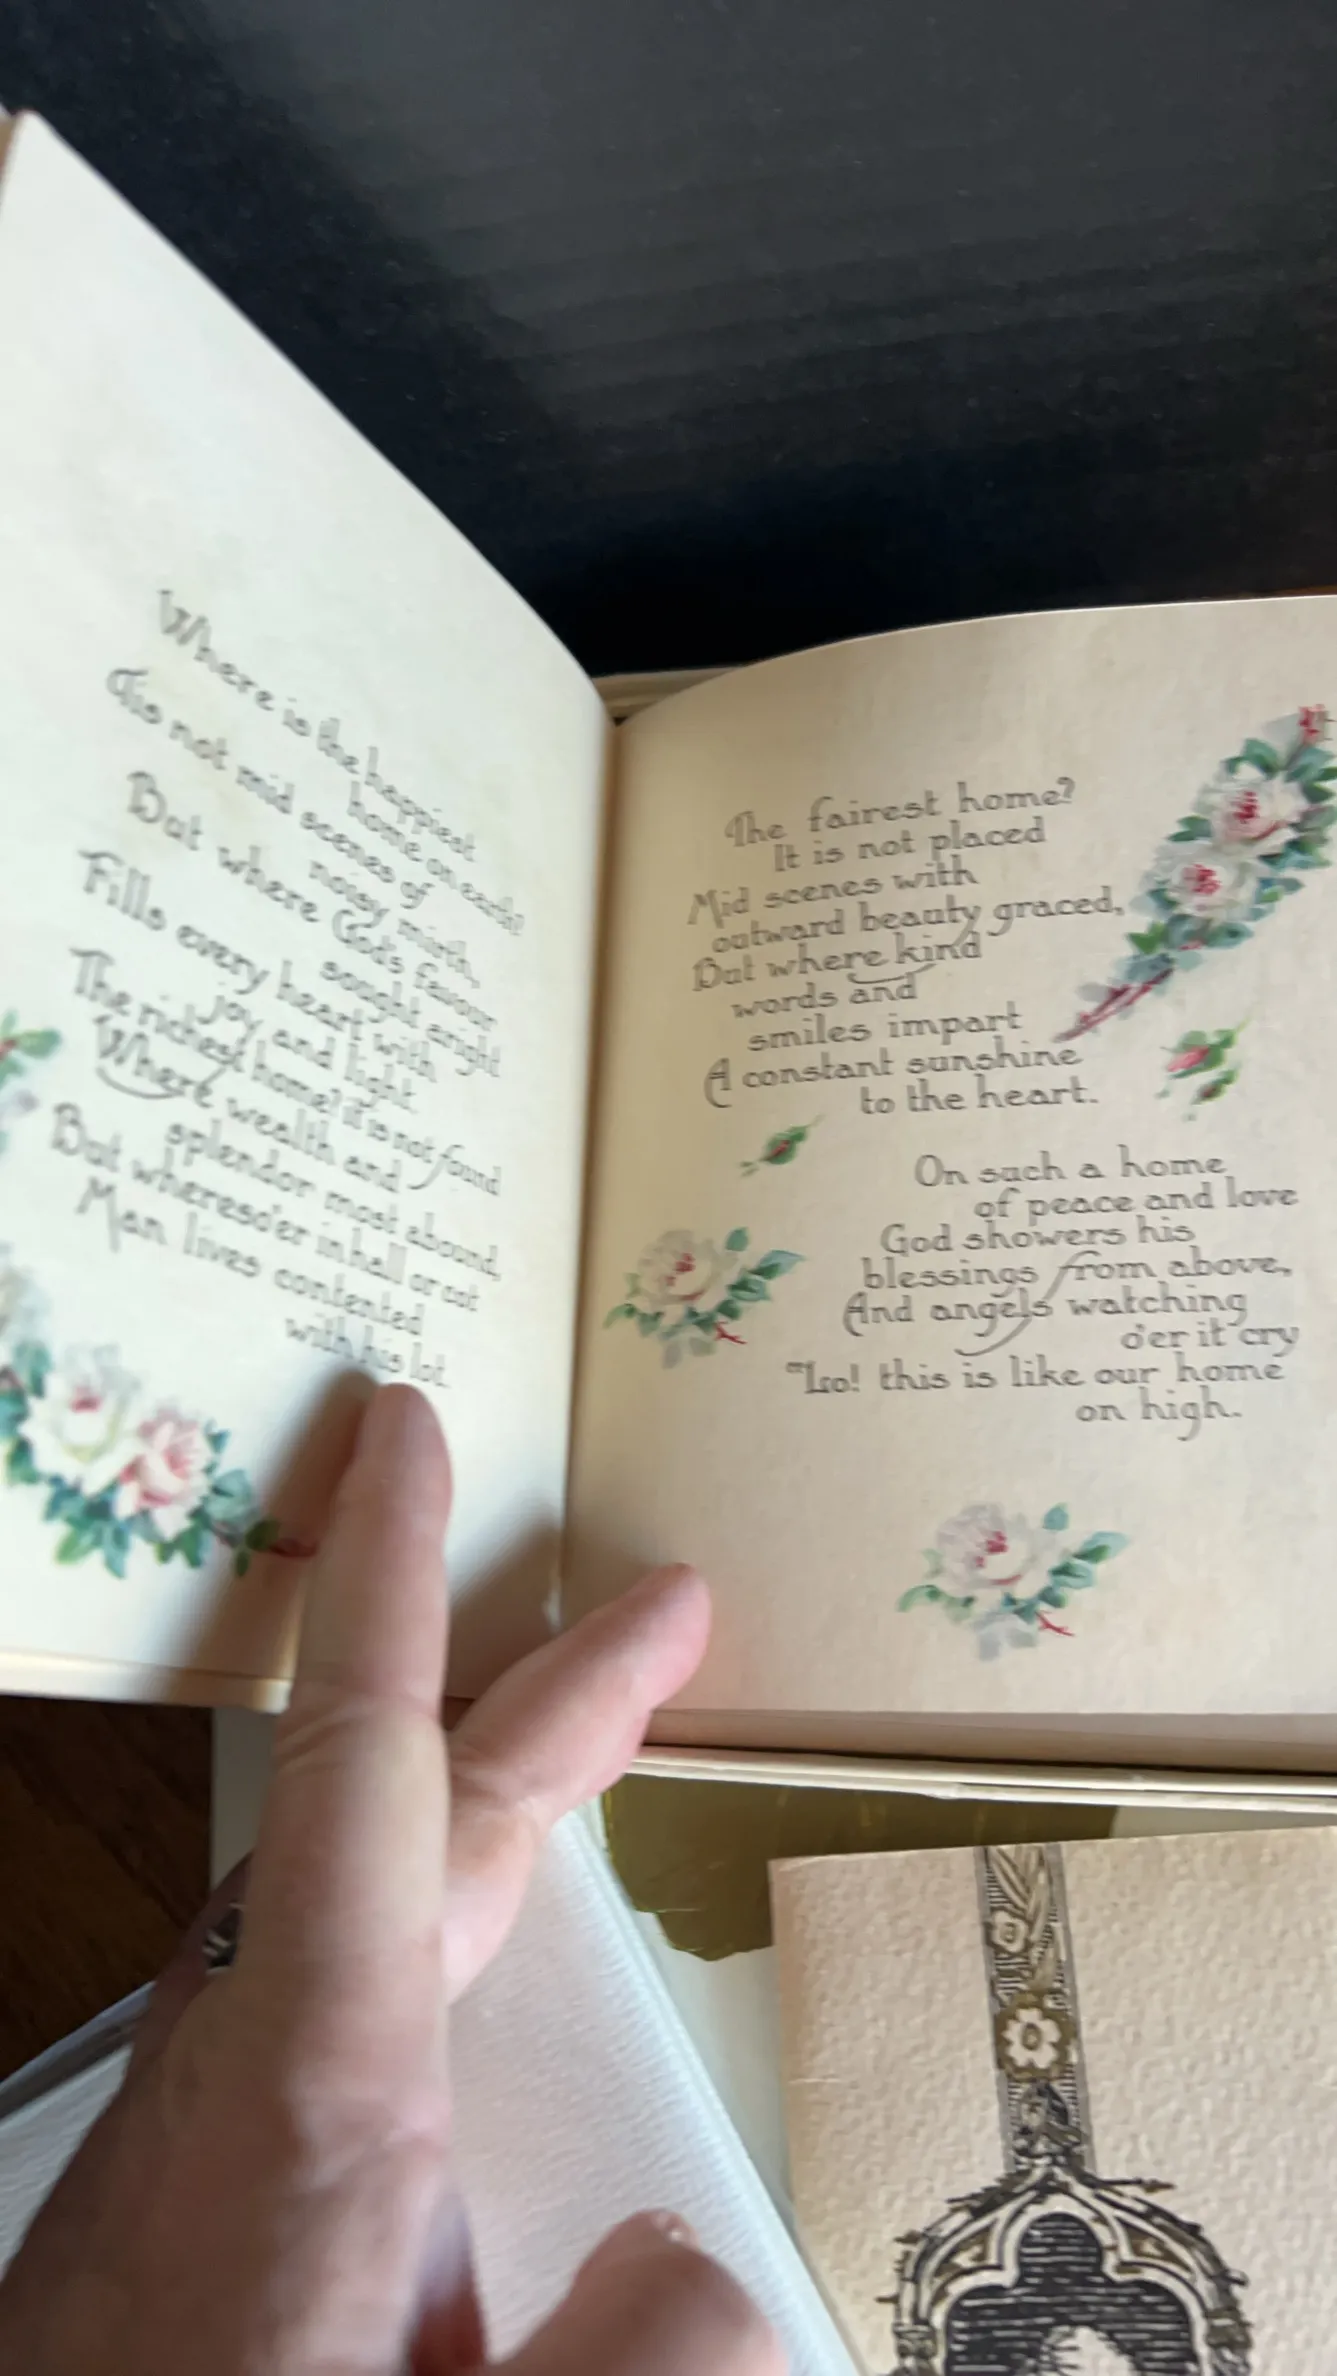 Where is the happiest
home on earth?
Tis not mid scenes of
noisy mirth,
But where God's favour
sought aright
Fills every heart with
joy and light.
The richest home? it is not found
Where wealth and
splendor most abound,
But wheresoe'er in hall or cot
Man lives contented
with his lot.
The fairest home?
It is not placed
Mid scenes with
outward beauty graced,
But where kind
words and
smiles impart
A constant sunshine
to the heart.
On such a home
of peace and love
God showers his
blessings from above,
And angels watching
o'er it cry
"Lo! this is like our home
on high.